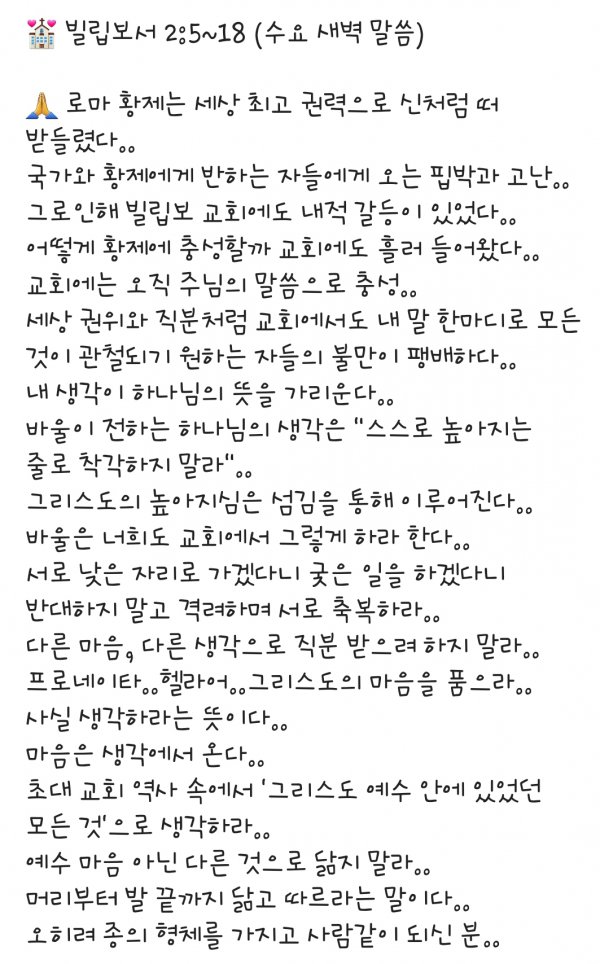 💒 빌립보서 2:5~18 (수요 새벽 말씀)
🙏 로마 황제는 세상 최고 권력으로 신처럼 떠
받들렸다..
국가와 황제에게 반하는 자들에게 오는 핍박과 고난..
그로인해 빌립보 교회에도 내적 갈등이 있었다..
어떻게 황제에 충성할까 교회에도 흘러 들어왔다..
교회에는 오직 주님의 말씀으로 충성..
세상 권위와 직분처럼 교회에서도 내 말 한마디로 모든
것이 관철되기 원하는 자들의 불만이 팽배하다..
내 생각이 하나님의 뜻을 가리운다..
바울이 전하는 하나님의 생각은 "스스로 높아지는
줄로 착각하지 말라"..
그리스도의 높아지심은 섬김을 통해 이루어진다..
바울은 너희도 교회에서 그렇게 하라 한다..
서로 낮은 자리로 가겠다니 궂은 일을 하겠다니
반대하지 말고 격려하며 서로 축복하라..
다른 마음, 다른 생각으로 직분 받으려 하지 말라..
프로네이타..헬라어..그리스도의 마음을 품으라..
사실 생각하라는 뜻이다..
마음은 생각에서 온다..
초대 교회 역사 속에서 '그리스도 예수 안에 있었던
모든 것'으로 생각하라..
예수 마음 아닌 다른 것으로 닮지 말라..
머리부터 발 끝까지 닮고 따르라는 말이다..
오히려 종의 형체를 가지고 사람같이 되신 분..